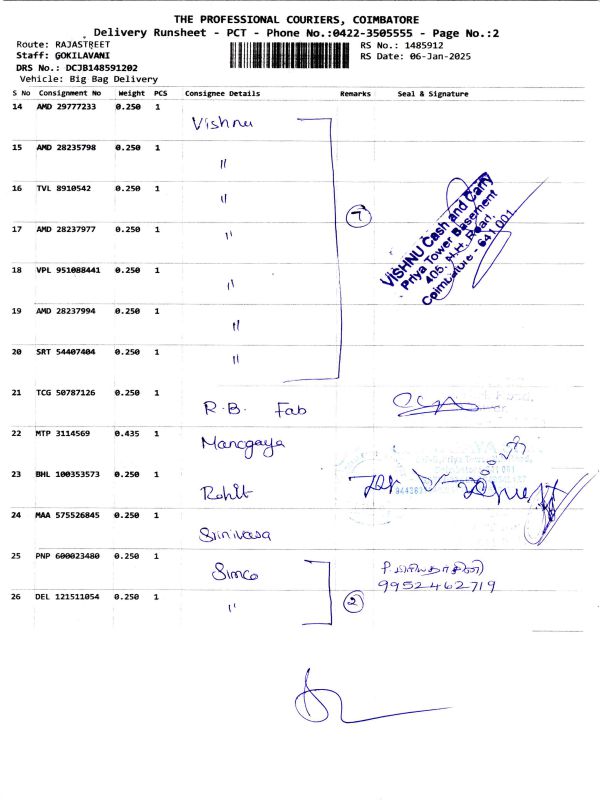 THE PROFESSIONAL COURIERS, COIMBATORE
Delivery Runsheet - PCT - Phone No.:0422-3505555 - Page No.:2
Route: RAJASTREET
Staff: GOKILAVANI
DRS No.: DCJB148591202
Vehicle: Big Bag Delivery
RS No.: 1485912
RS Date: 06-Jan-2025
S No Consignment No Weight PCS Consignee Details Remarks Seal & Signature
14 AMD 29777233 0.250 1 Vishnu
15 AMD 28235798 0.250 1 "
16 TVL 8910542 0.250 1 "
17 AMD 28237977 0.250 1 "
18 VPL 951088441 0.250 1 "
19 AMD 28237994 0.250 1 "
20 SRT 54407404 0.250 1 "
7
VISHNU Cash and Carry
Priya Tower Basement
405, N.H. Road,
Coimbatore - 641 001
21 TCG 50787126 0.250 1 R.B. Fab
22 MTP 3114569 0.435 1 Mancgaya
23 BHL 100353573 0.250 1 Rohit
24 MAA 575526845 0.250 1 Srinivasa
25 PNP 600023480 0.250 1 Simco
9952462719
26 DEL 121511054 0.250 1 "
2